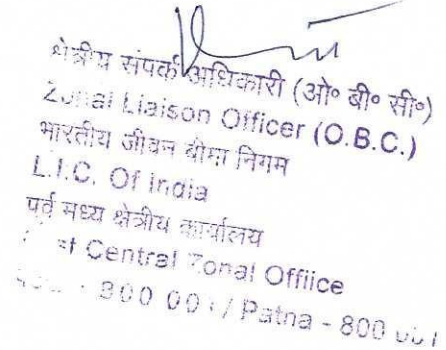 क्षेत्रीय संपर्क अधिकारी (ओ० बी० सी०)
Zonal Liaison Officer (O.B.C.)
भारतीय जीवन बीमा निगम
L.I.C. Of India
पूर्व मध्य क्षेत्रीय कार्यालय
Central Zonal Offiice
800 001 / Patna - 800 001